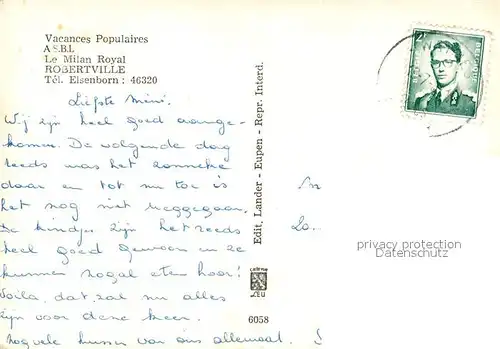 Vacances Populaires
A.S.B.L
Le Milan Royal
ROBERTVILLE
Tél. Elsenborn : 46320
Liefste Mimi.
Wij zijn heel goed aange-
komen. De volgende dag
reeds was het zonneke
daar en tot nu toe is
het nog niet weggegaan.
De kindjes zijn het reeds
heel goed gewoon en ze
kunnen nogal eten hoor!
Voila, dat zal nu alles
zijn voor deze keer.
nog vele kussen van ons allemaal.
Edit. Lander - Eupen - Repr. Interd.
6058
BELGIQUE
privacy protection
Datenschutz